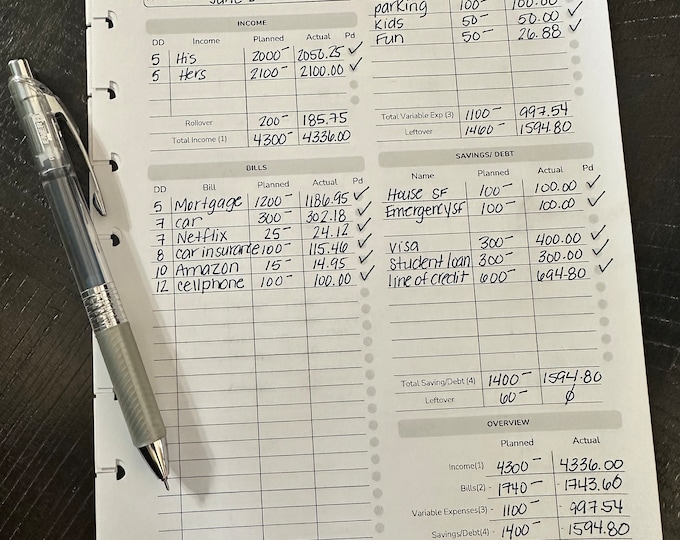 INCOME
DD Income Planned Actual Pd
5 His 2000- 2050.25 ✓
5 Hers 2100- 2100.00 ✓
Rollover 200- 185.75
Total Income (1) 4300- 4336.00
BILLS
DD Bill Planned Actual Pd
5 Mortgage 1200- 1186.95 ✓
7 car 300- 302.18 ✓
7 Netflix 25- 24.12 ✓
8 car insurance 100- 115.46 ✓
10 Amazon 15- 14.95 ✓
12 cellphone 100- 100.00 ✓
parking 100- 100.00
Kids 50- 50.00 ✓
Fun 50- 26.88 ✓
Total Variable Exp (3) 1100- 997.54
Leftover 1460- 1594.80
SAVINGS/ DEBT
Name Planned Actual Pd
House SF 100- 100.00 ✓
Emergency SF 100- 100.00 ✓
Visa 300- 400.00 ✓
Student loan 300- 300.00 ✓
line of credit 600- 694.80 ✓
Total Saving/Debt (4) 1400- 1594.80
Leftover 60- ∅
OVERVIEW
Planned Actual
Income(1) 4300- 4336.00
Bills(2) - 1740- - 1743.66
Variable Expenses(3) - 1100- - 997.54
Savings/Debt(4) - 1400- - 1594.80